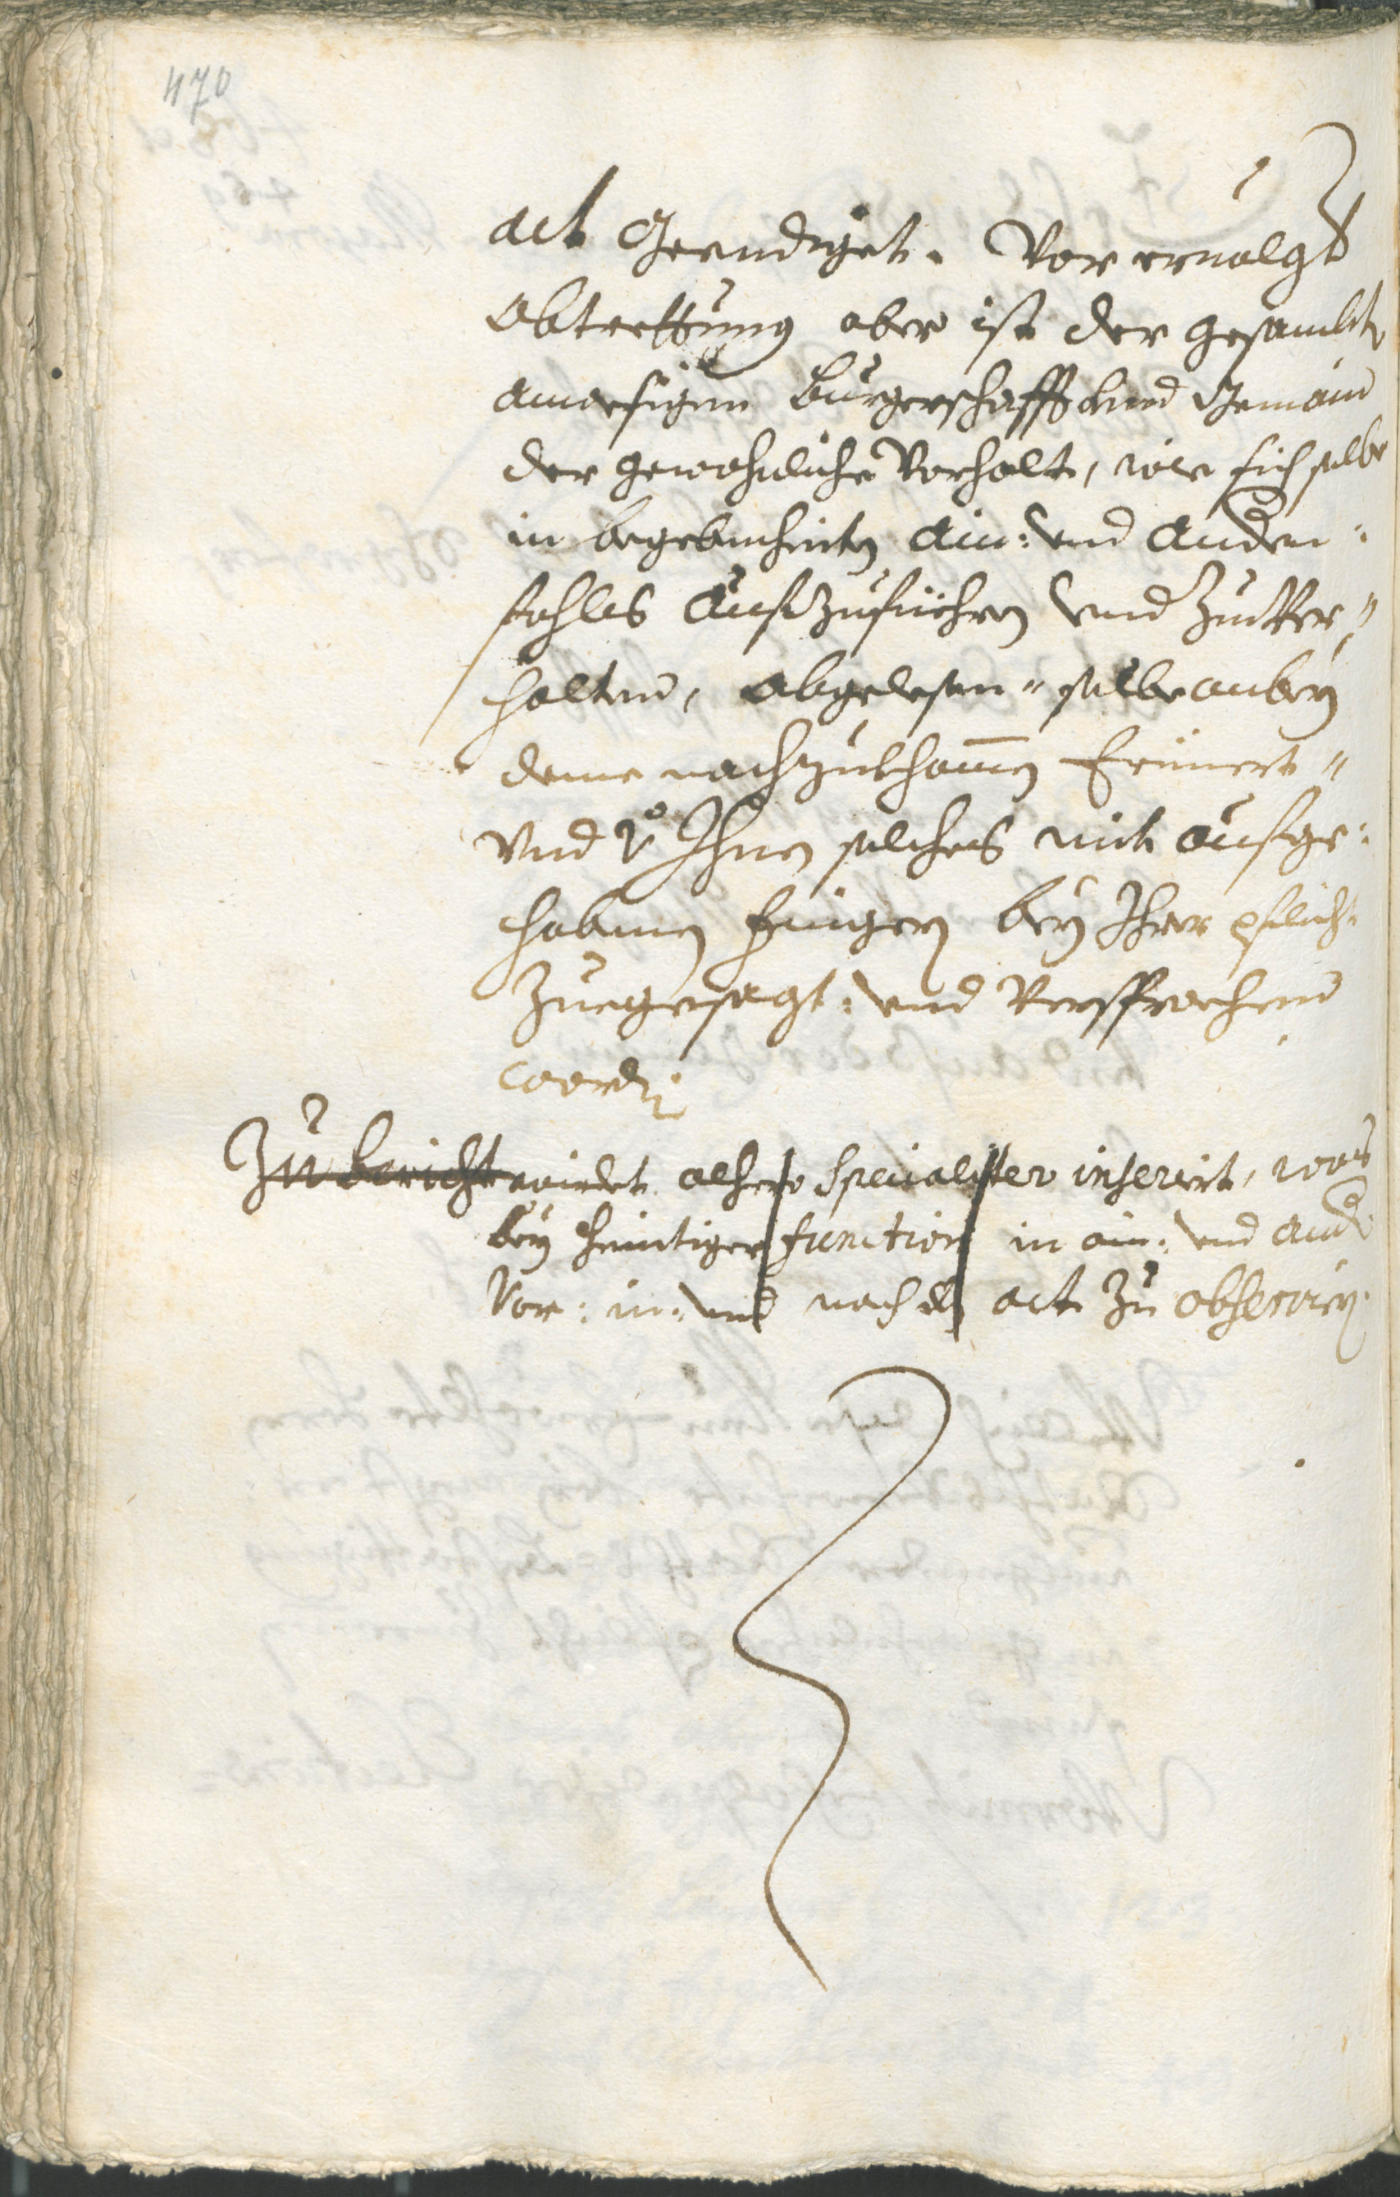 470
act Geendiget. Vor ervolgt
Abtrettung aber ist der gesambte
anwesigen Burgerschafft und Gemain
der gewohnliche Vorhalt, wie sich selbe
in begebenheiten ain: und anden:
fahles aufzufiehren und zuver"
halten, abgelesen" selbe anbey
deme nachzukhomen Erinert"
Und v Ihnen solches mit aufge:
habnen fingern bey Ihrer pflicht
zuegesagt: und Versprochen
worden.
Zu bericht wirdet alhero Specialiter inserirt, was
bey heintiger function in ain: und and
Vor: in: und nach dem act zu observirn.